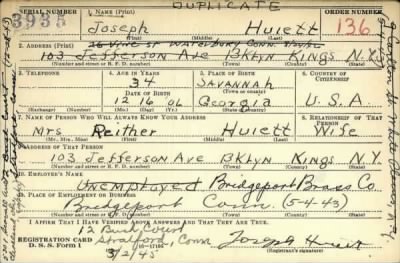 DUPLICATE
SERIAL NUMBER 1. NAME (Print) ORDER NUMBER
3935 Joseph Huiett 136
(First) (Middle) (Last)
2. ADDRESS (Print)
26 Vine St Waterbury Conn.
103 Jefferson Ave BKlyn Kings N.Y.
(Number and street or R. F. D. number) (Town) (County) (State)
3. TELEPHONE 4. AGE IN YEARS 5. PLACE OF BIRTH 6. COUNTRY OF CITIZENSHIP
34 SAVANNAH
DATE OF BIRTH (Town or county)
12 16 06 Georgia U.S.A.
(Exchange) (Number) (Mo.) (Day) (Yr.) (State or country)
7. NAME OF PERSON WHO WILL ALWAYS KNOW YOUR ADDRESS 8. RELATIONSHIP OF THAT PERSON
Mrs Reither Huiett Wife
(Mr., Mrs., Miss) (First) (Middle) (Last)
9. ADDRESS OF THAT PERSON
103 Jefferson Ave BKlyn Kings N.Y.
(Number and street or R. F. D. number) (Town) (County) (State)
10. EMPLOYER'S NAME
Unemployed Bridgeport Brass Co.
11. PLACE OF EMPLOYMENT OR BUSINESS
Bridgeport Conn. (5-4-43)
(Number and street or R. F. D. number) (Town) (County) (State)
I AFFIRM THAT I HAVE VERIFIED ABOVE ANSWERS AND THAT THEY ARE TRUE.
12 Bud Court
REGISTRATION CARD Stratford, Conn
D. S. S. FORM 1 Joseph Huiett
3/2/45 (Registrant's signature)